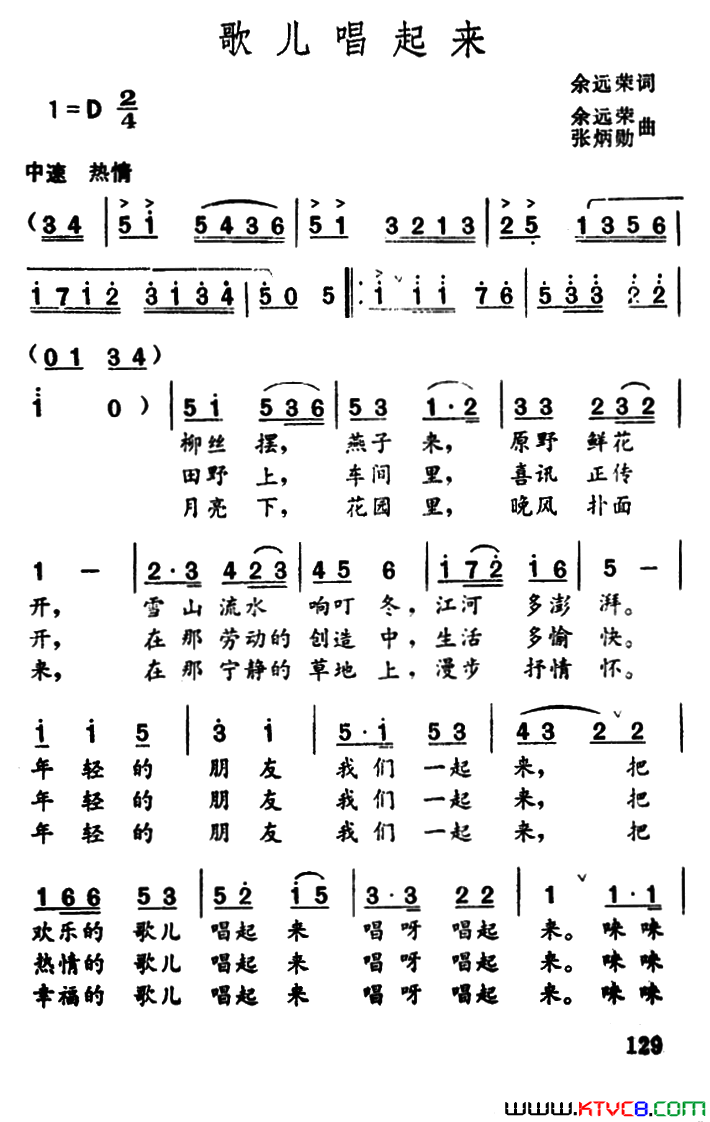 歌儿唱起来
余远荣词
1=D 2/4
余远荣
张炳勋 曲
中速 热情
(3 4 | 5 i 5 4 3 6 | 5 1 3 2 1 3 | 2 5 1 3 5 6 |
i 7 i 2 3 i 3 4 | 5 0 5 ‖: i i i 7 6 | 5 3 3 2 2 |
(0 1 3 4)
i 0 ) | 5 i 5 3 6 | 5 3 1 · 2 | 3 3 2 3 2 |
柳丝 摆, 燕子 来, 原野 鲜花
田野 上, 车间 里, 喜讯 正传
月亮 下, 花园 里, 晚风 扑面
1 – | 2 · 3 4 2 3 | 4 5 6 | i 7 2 i 6 | 5 – |
开, 雪山流水 响叮 冬, 江河 多澎 湃。
开, 在那劳动的 创造 中, 生活 多愉 快。
来, 在那宁静的 草地 上, 漫步 抒情 怀。
i i 5 | 3 i | 5 · i 5 3 | 4 3 2 2 |
年轻的 朋友 我们一起 来, 把
年轻的 朋友 我们一起 来, 把
年轻的 朋友 我们一起 来, 把
1 6 6 5 3 | 5 2 i 5 | 3 · 3 2 2 | 1 1 · 1 |
欢乐的 歌儿 唱起 来 唱呀 唱起 来。 咪咪
热情的 歌儿 唱起 来 唱呀 唱起 来。 咪咪
幸福的 歌儿 唱起 来 唱呀 唱起 来。 咪咪
129
www.KTVC8.com